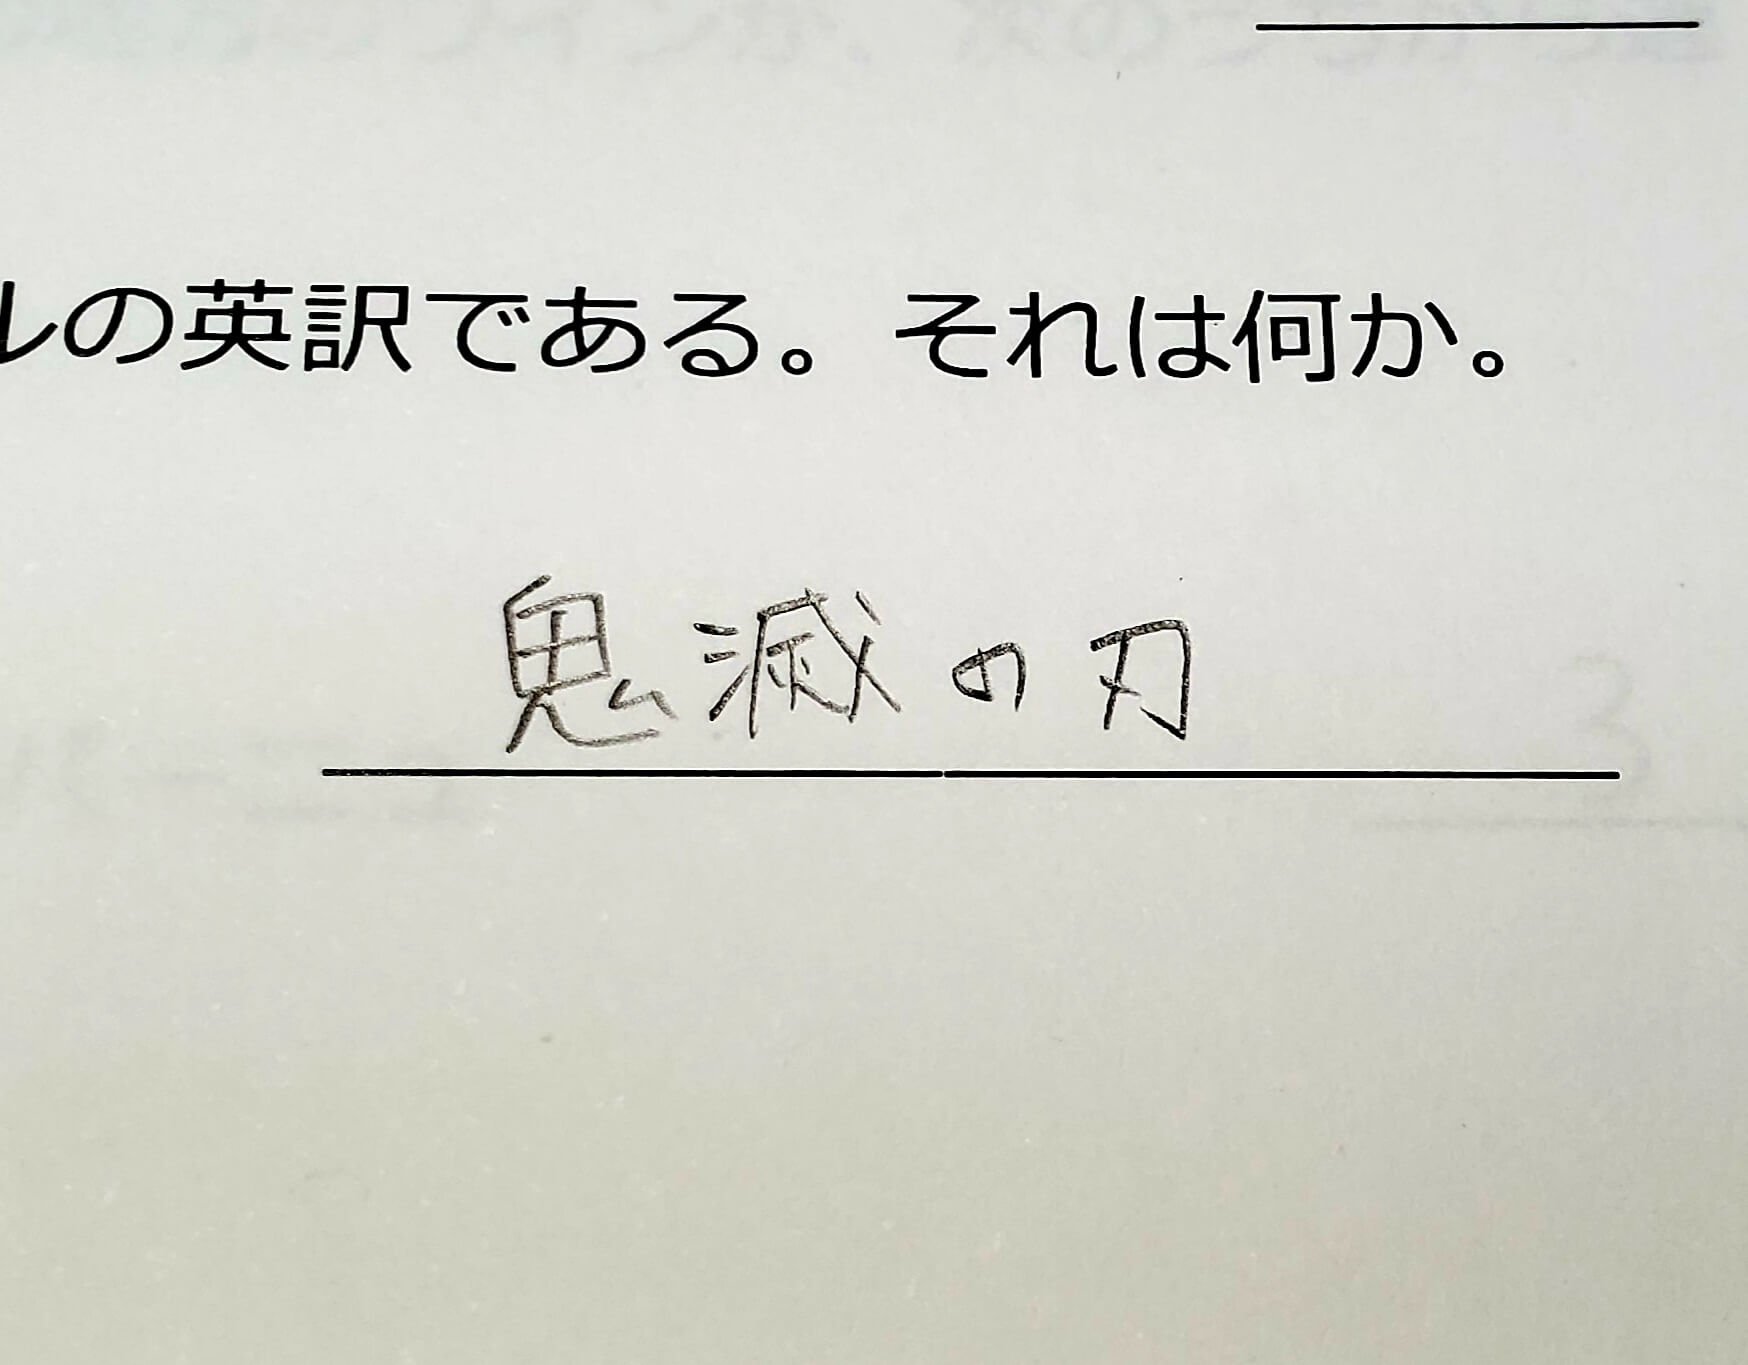 ルの英訳である。それは何か。
鬼滅の刃